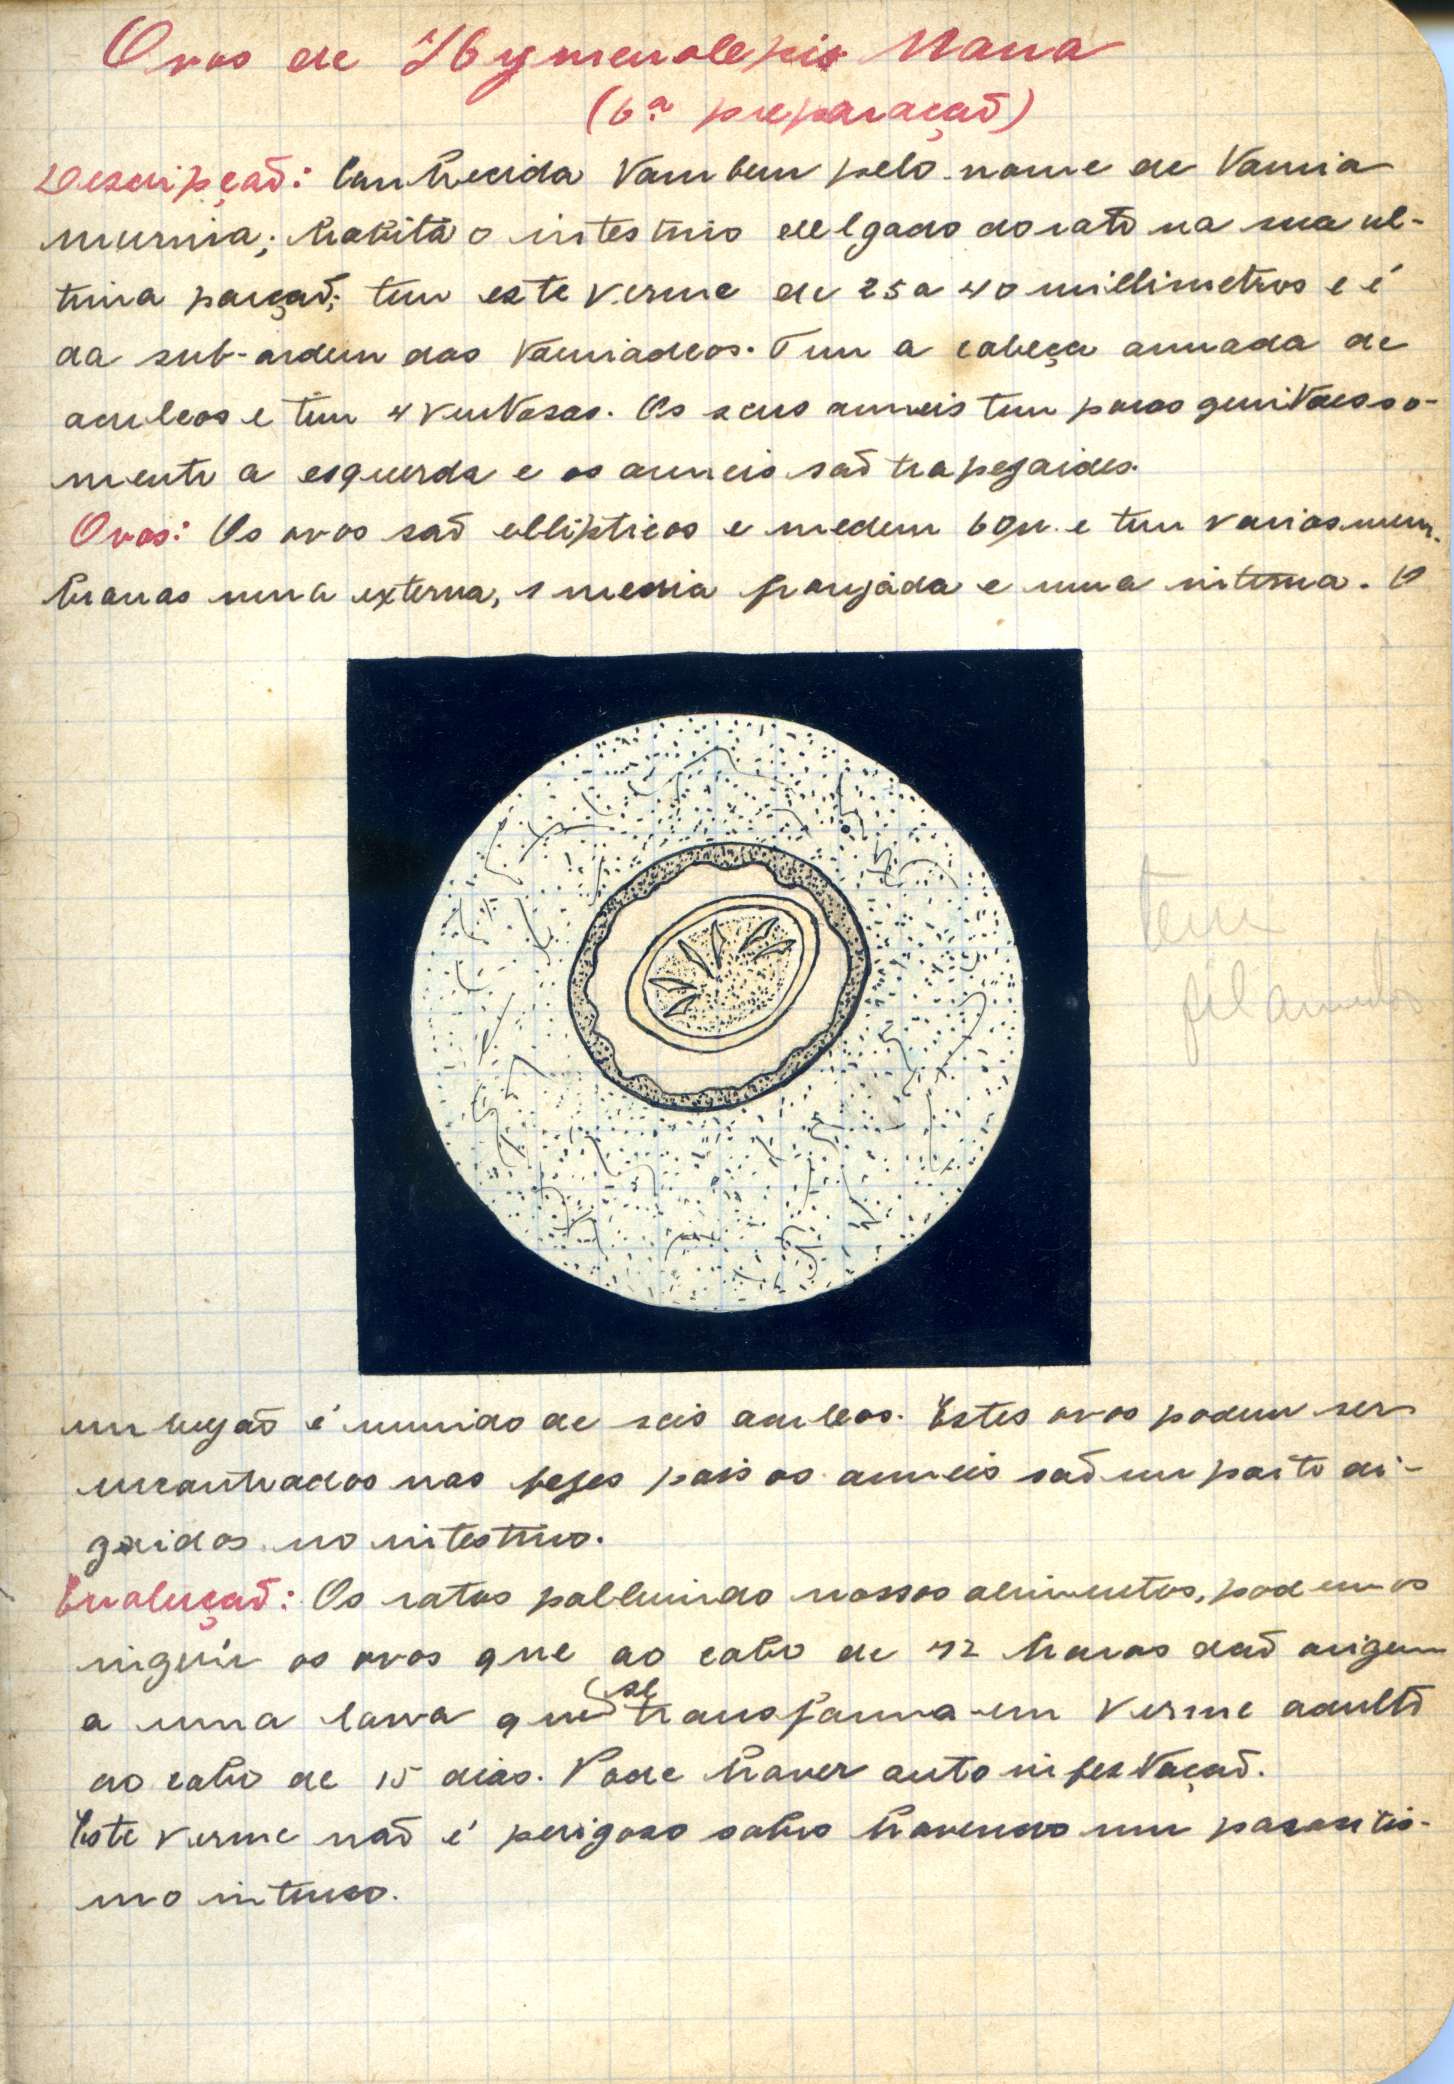 Ovos de Hymenolepis Nana
(6ª preparação)
Descripção: Conhecida tambem pelo nome de Tania
murina; habita o intestino delgado do rato na sua ul-
tima porção; tem este verme de 25 a 40 millimetros e é
da sub-ordem dos taeniadeos. Tem a cabeça armada de
aculeos e tem 4 ventosas. Os seus anneis tem poros genitaes so-
mente a esquerda e os anneis são trapezoides.
Ovos: Os ovos são ellipticos e medem 60µ e tem varias mem-
branas uma externa, 1 media franjada e uma interna. O
tem
filamentos
embryão é munido de seis aculeos. Estes ovos podem ser
encontrados nas fezes pois os anneis são em parte di-
geridos no intestino.
Evolução: Os ratos polluindo nossos alimentos, podemos
ingerir os ovos que ao cabo de 42 horas dão origem
a uma larva que se transforma em verme adulto
ao cabo de 15 dias. Pode haver auto infestação.
Este verme não é perigoso salvo havendo um parasitis-
mo intenso.